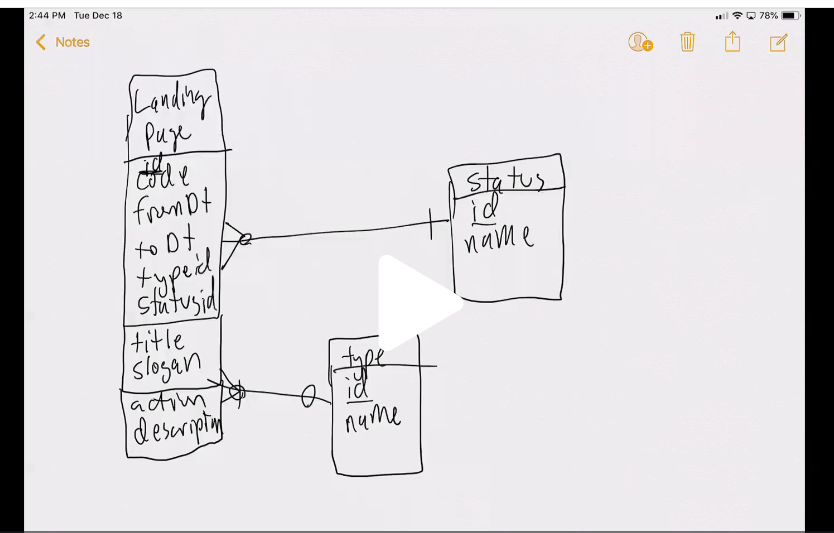 2:44 PM Tue Dec 18
78%
Notes
Landing
Page
id
code
fromDt
to Dt
typeid
statusid
title
slogan
action
description
status
id
name
type
id
name